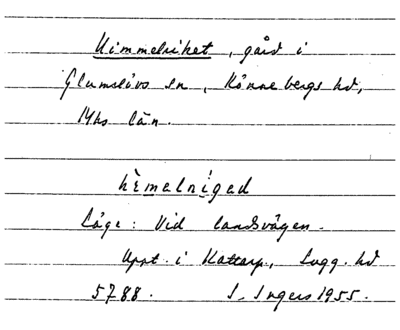 Himmelriket, gård i
Glumslövs sn, Rönnebergs hd,
Mhs län.
hèmelrìgad
Läge: Vid landsvägen.
Uppt. i Kattarp, Lugg. hd
5788. I. Ingers 1955.